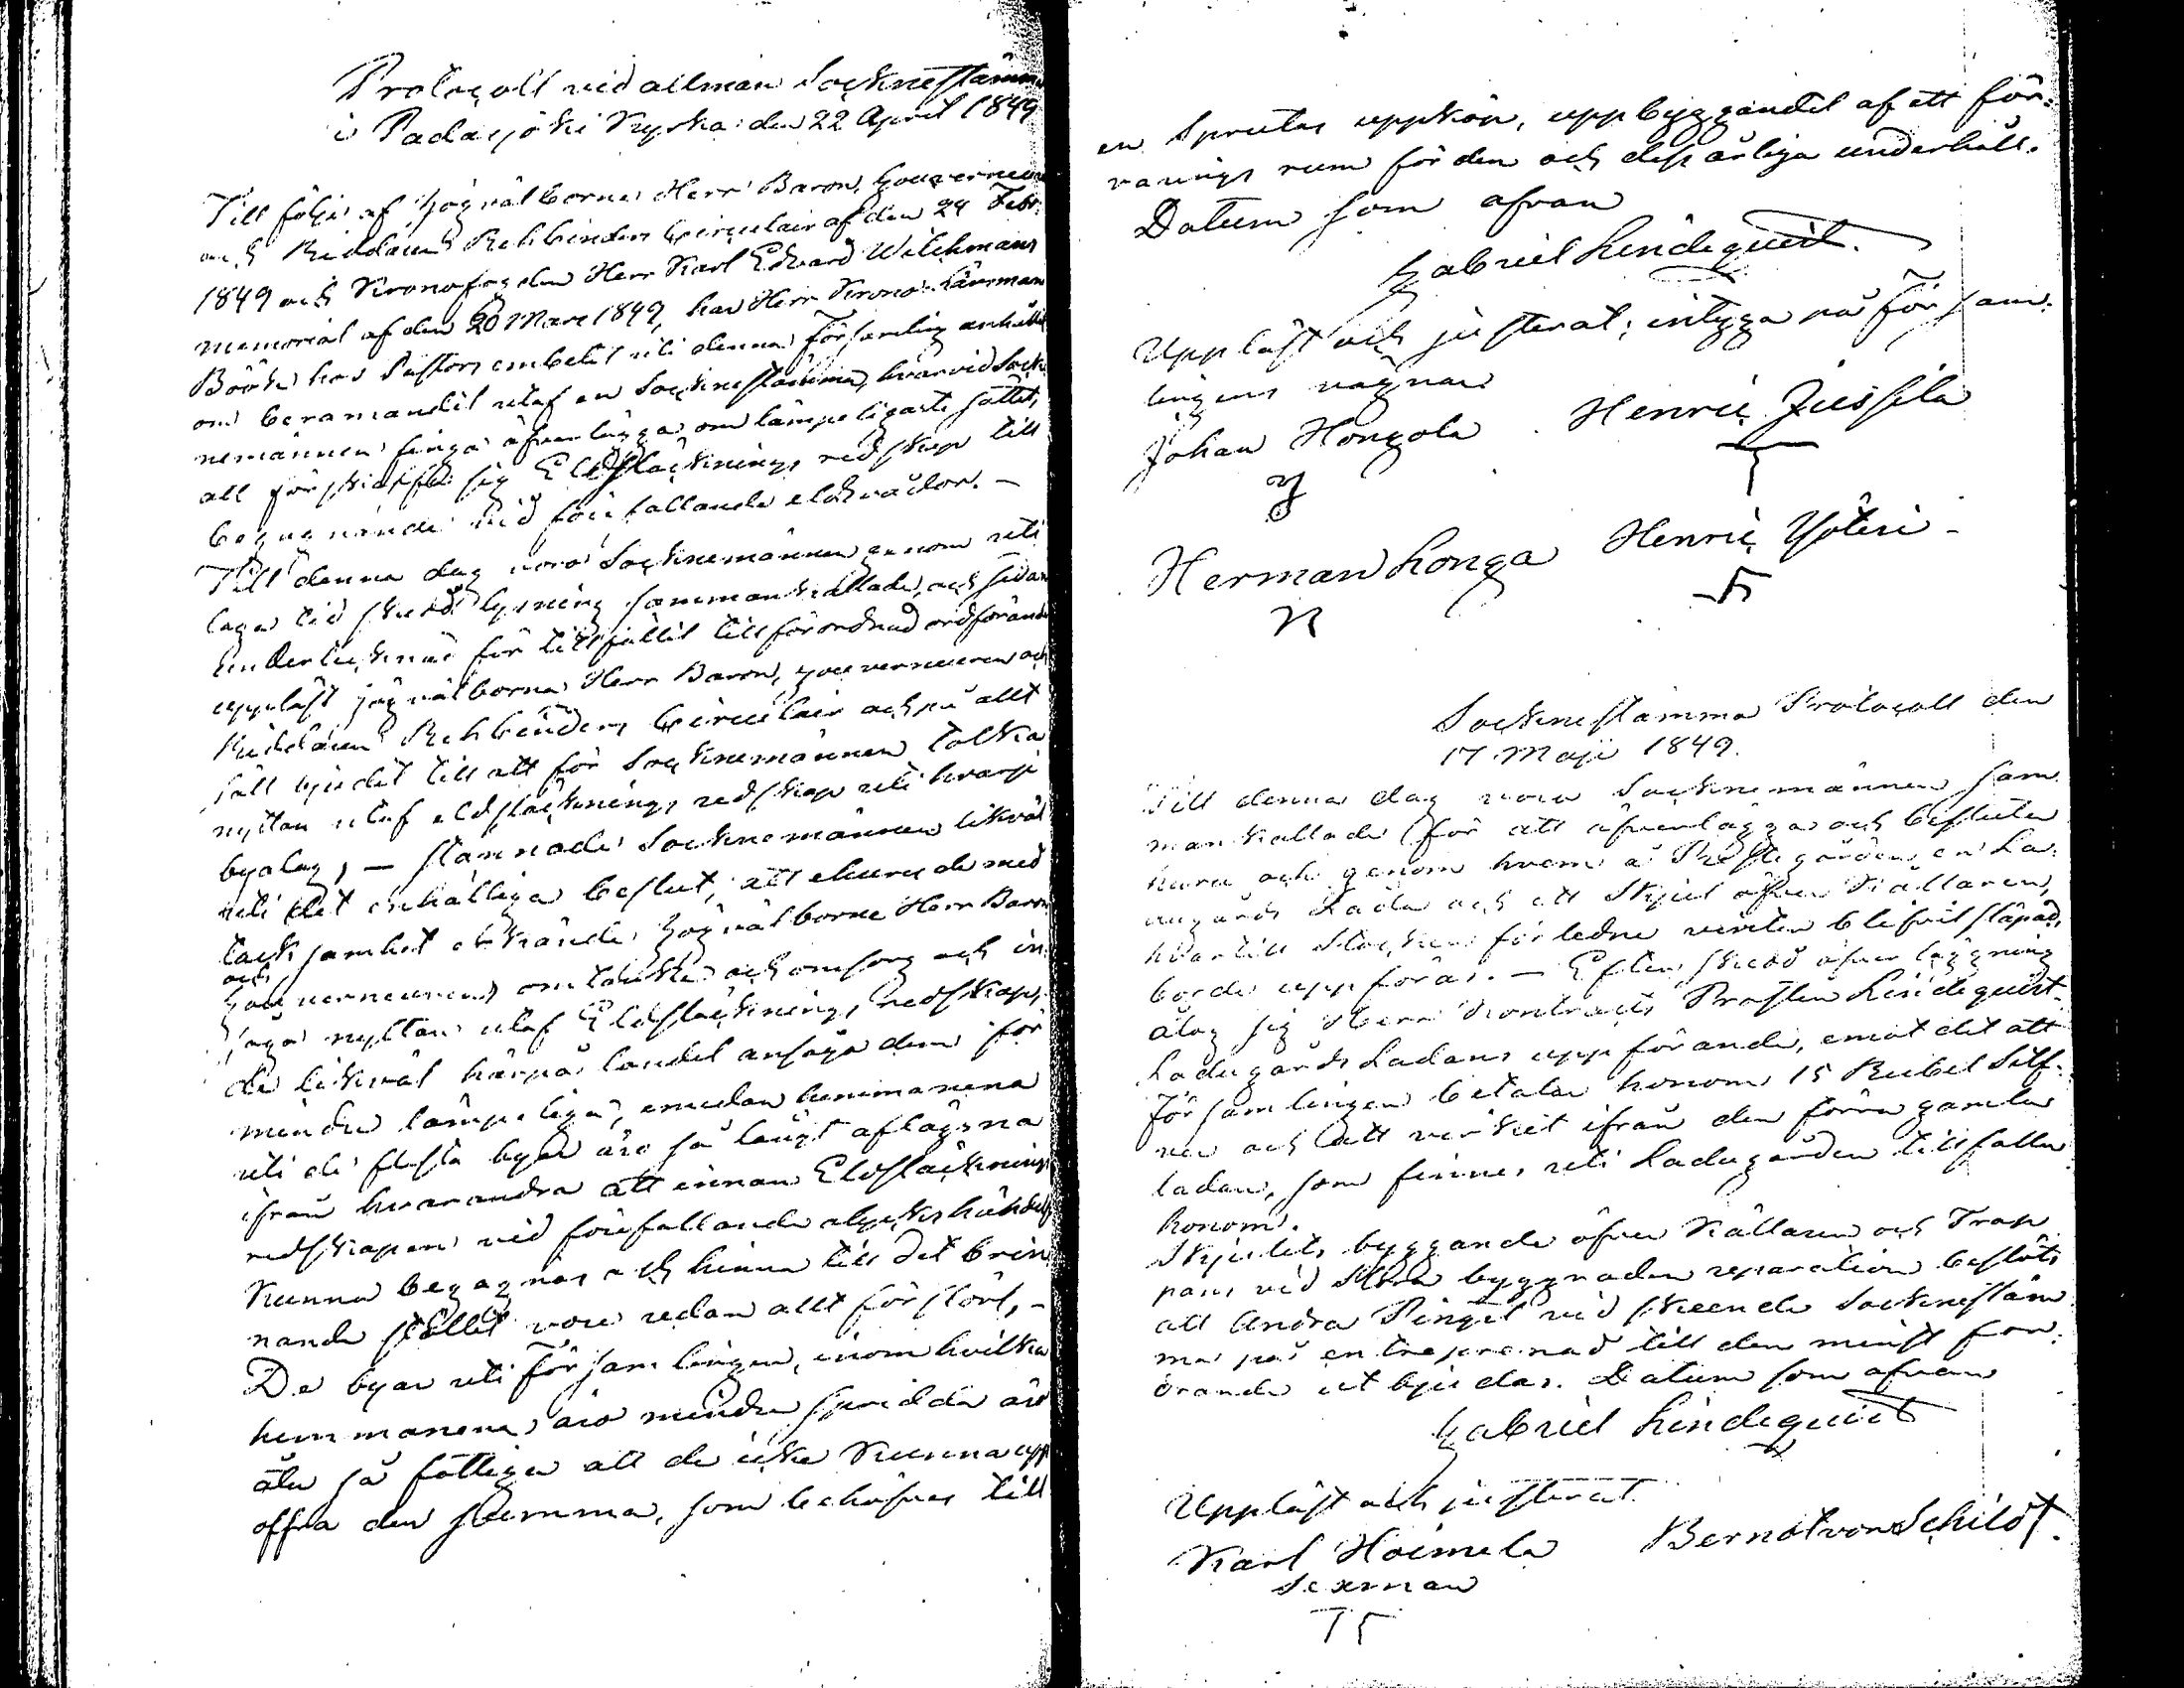 Protocoll vid allman Socknestämma
i Padasjoki Kyrka: den 22 April 1849
Till följe af Högvälborne Herr Baron, Gouverneuren
och Riddaren Rehbinders Circulair af den 24 Febr:
1849 och Kronofogden Herr Karl Edvard Wilckmans
memorial af den 20 Mars 1849, har Herr Krono Länsman
Böök hos Pastors embetet uti denna Församling anhållit
om beramandet utaf en Socknestämma, hvarvid Sock-
nemännen finge öfverlägga om lämpeligaste sättet,
att förskaffa sig Eldsläcknings redskap till
begagnande vid förefallande eldsvådor. –
Till denna dag voro Socknemännen genom uti
laga tid skedd lysning sammankallade, och sedan
undertecknad för tillfället tillförordnad ordförande
uppläst högvälborne Herr Baron, gouverneuren och
Riddaren Rehbinders Circulair och på allt
sätt bjudit till att för Socknemännen tolka
nyttan utaf eldsläcknings redskap uti hvarje
byalag, – stannade Socknemännen likväl
uti det enhälliga beslut, att ehuru de med
tacksamhet erkände högvälborne Herr Baron
och
gouverneurens omtanke och omsorg och in-
såge nyttan utaf Eldsläcknings redskap,
de likväl härpå landet ansågo dem för
mindre lämpeliga, emedan hemmanena
uti de flesta byar äro så långt aflägsna
ifrån hvarandra att innan Eldsläcknings
redskapen vid förefallande olyckshändelse
kunna begagnas och hinna till det brin-
nande stället vore redan allt förstördt, –
De byar uti Församlingen, inom hvilka
hemmanena äro mindre spridda äro
åter så fattiga att de icke kunna upp-
offra den summa, som behöfves till
en Sprutas uppköp, uppbyggandet af ett för-
varings rum för den och dess årliga underhåll.
Datum som ofvan
Gabriel Lindequist.
Uppläst och justerat; intyga på Försam-
lingens vägnar
Johan Hongola Henric Jussila
Herman Longa Henric Ylöteri
Socknestämma Protocoll den
17 Maji 1849.
Till denna dag voro Socknemännen sam-
mankallade för att öfverlägga och besluta
huru och genom hvem å Prestegården en La-
dugårds Lada och ett Skjul öfver Källaren,
hvartill Stockar förledne vinter blifvit släpade,
borde uppföras. – Efter skedd öfverläggning
åtog sig Herr Kontracts Prosten Lindequist
Ladugårds Ladans uppförande, emot det att
Församlingen betalar honom 15 Rubel Silf-
ver och att virket ifrån den förra gamla
ladan, som finnes uti Ladugården tillfaller
honom.
Skjulets byggande öfver Källaren och Trap-
pans vid Stora byggnaden reparation beslöts
att Andra Pingst vid skeende Socknestäm-
ma på entreprenad till den minst for-
drande utbjudas. Datum som ofvan
Gabriel Lindequist
Uppläst och justerat.
Karl Hoimela Berndt von Schildt.
Sexman